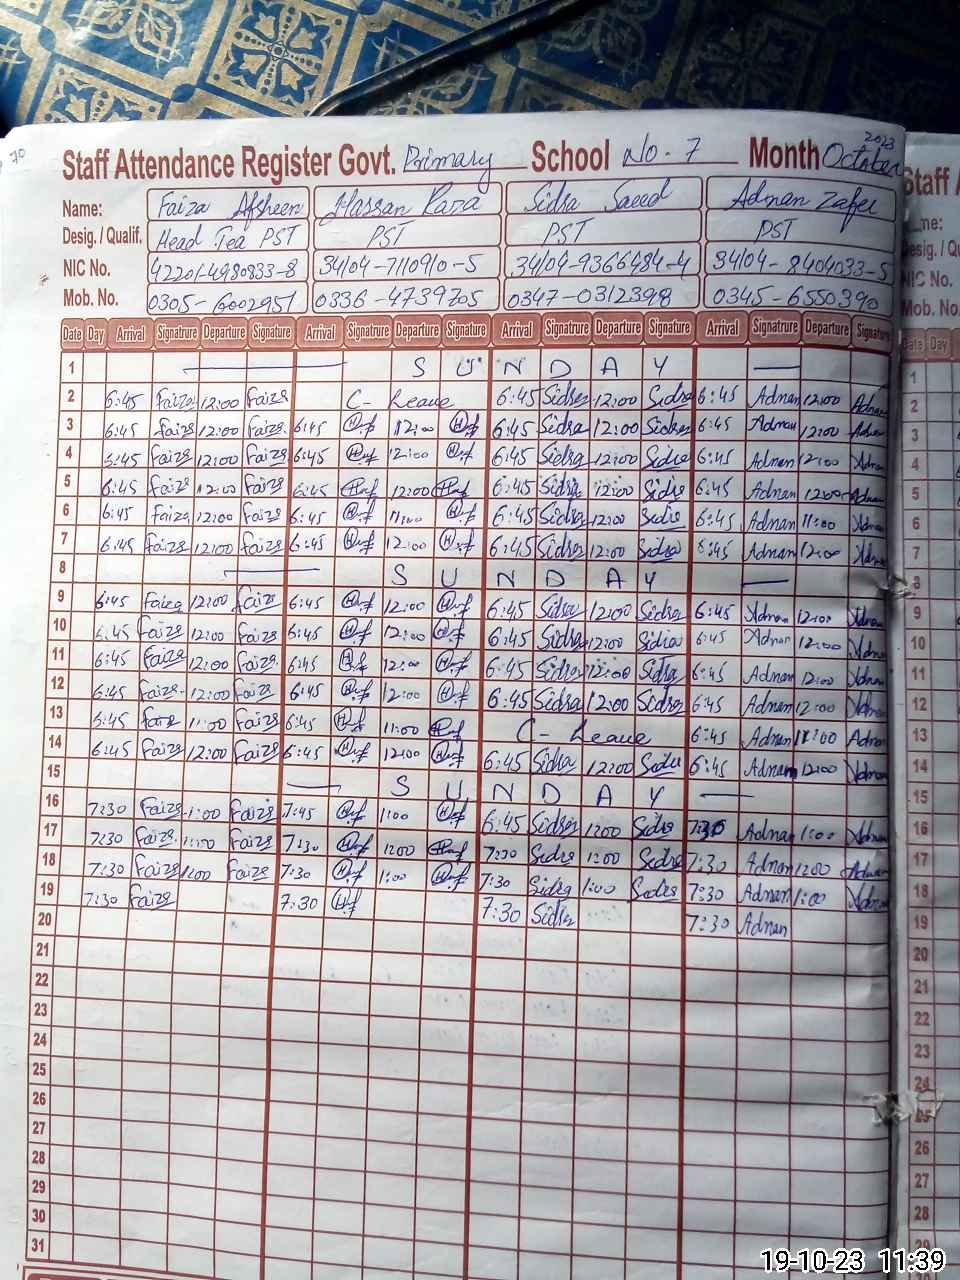 70
2023
Staff Attendance Register Govt. Primary School No-7 Month October
Name: Faiza Afsheen Hassan Raza Sidra Saeed Adnan Zafar
Desig. / Qualif. Head Tea PST PST PST PST
NIC No. 42201-4980833-8 34104-7110910-5 34104-9366484-4 34104-8404033-5
Mob. No. 0305-6002951 0336-4739705 0347-0312398 0345-6550390
Date Day Arrival Signatrure Departure Signatrure Arrival Signatrure Departure Signatrure Arrival Signatrure Departure Signatrure Arrival Signatrure Departure Signatrure
1 S U N D A Y
2 6:45 Faiza 12:00 Faiza C- Leave 6:45 Sidra 12:00 Sidra 6:45 Adnan 12:00 Adnan
3 6:45 Faiza 12:00 Faiza 6:45 12:00 6:45 Sidra 12:00 Sidra 6:45 Adnan 12:00 Adnan
4 6:45 Faiza 12:00 Faiza 6:45 12:00 6:45 Sidra 12:00 Sidra 6:45 Adnan 12:00 Adnan
5 6:45 Faiza 12:00 Faiza 6:45 12:00 6:45 Sidra 12:00 Sidra 6:45 Adnan 12:00 Adnan
6 6:45 Faiza 12:00 Faiza 6:45 11:00 6:45 Sidra 12:00 Sidra 6:45 Adnan 11:00 Adnan
7 6:45 Faiza 12:00 Faiza 6:45 12:00 6:45 Sidra 12:00 Sidra 6:45 Adnan 12:00 Adnan
8 S U N D A Y
9 6:45 Faiza 12:00 Faiza 6:45 12:00 6:45 Sidra 12:00 Sidra 6:45 Adnan 12:00 Adnan
10 6:45 Faiza 12:00 Faiza 6:45 12:00 6:45 Sidra 12:00 Sidra 6:45 Adnan 12:00 Adnan
11 6:45 Faiza 12:00 Faiza 6:45 12:00 6:45 Sidra 12:00 Sidra 6:45 Adnan 12:00 Adnan
12 6:45 Faiza 12:00 Faiza 6:45 12:00 6:45 Sidra 12:00 Sidra 6:45 Adnan 12:00 Adnan
13 6:45 Faiza 11:00 Faiza 6:45 11:00 C- Leave 6:45 Adnan 11:00 Adnan
14 6:45 Faiza 12:00 Faiza 6:45 12:00 6:45 Sidra 12:00 Sidra 6:45 Adnan 12:00 Adnan
15 S U N D A Y
16 7:30 Faiza 1:00 Faiza 7:45 1:00 6:45 Sidra 1:00 Sidra 7:30 Adnan 1:00 Adnan
17 7:30 Faiza 1:00 Faiza 7:30 1:00 7:30 Sidra 1:00 Sidra 7:30 Adnan 1:00 Adnan
18 7:30 Faiza 1:00 Faiza 7:30 1:00 7:30 Sidra 1:00 Sidra 7:30 Adnan 1:00 Adnan
19 7:30 Faiza 7:30 7:30 Sidra 7:30 Adnan
20
21
22
23
24
25
26
27
28
29
30
31
Staff
Desig. /
NIC No.
Mob. No.
Date Day
1
2
3
4
5
6
7
8
9
10
11
12
13
14
15
16
17
18
19
20
21
22
23
24
25
26
27
28
29
19-10-23 11:39